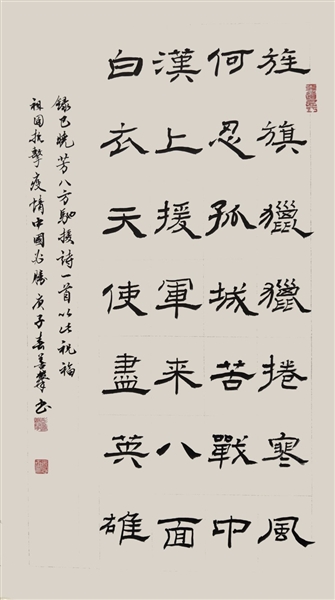 旌旗獵獵捲寒風
何忍孤城苦戰中
漢上援軍来八面
白衣天使盡英雄
錄巴曉芳八方馳援詩一首以此祝福
祖國抗擊疫情中國必勝庚子春善犖书